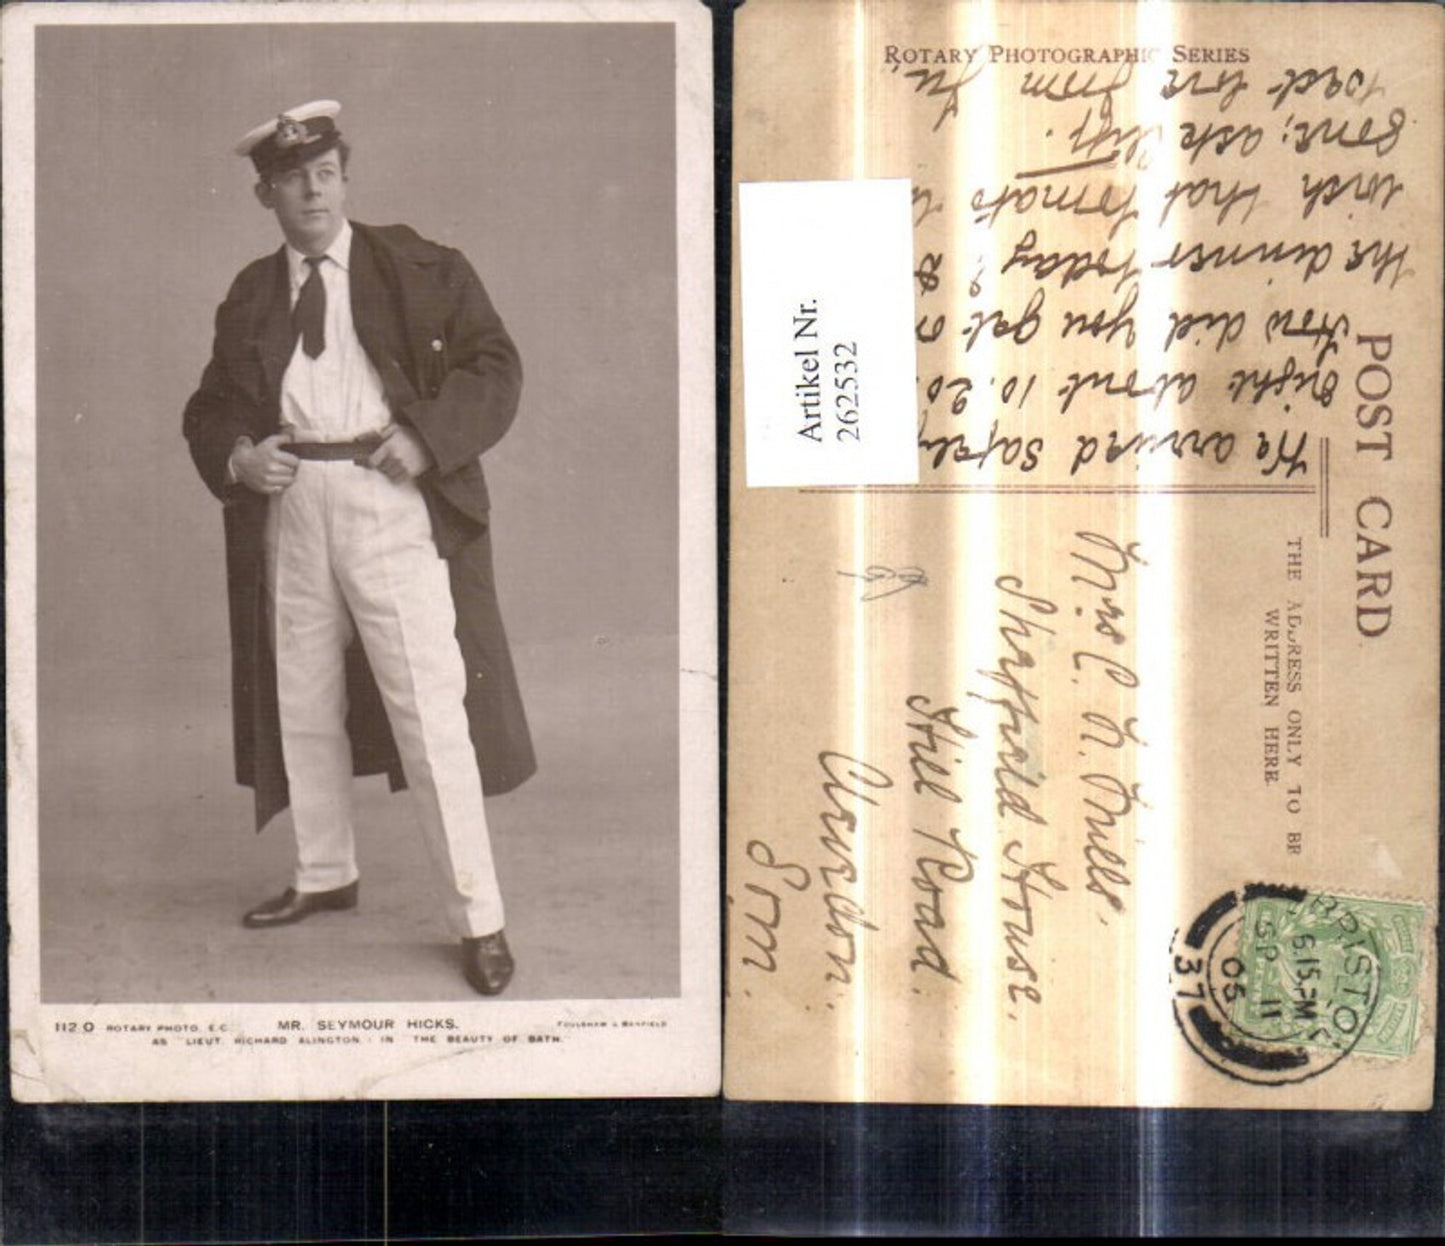 112 O ROTARY PHOTO. E.C. MR. SEYMOUR HICKS. FOULSHAM & BANFIELD
AS "LIEUT. RICHARD ALINGTON" IN "THE BEAUTY OF BATH."
ROTARY PHOTOGRAPHIC SERIES
POST CARD
THE ADDRESS ONLY TO BE
WRITTEN HERE.
Artikel Nr.
262532
We arrived safely
right about 10.20.
How did you get
the dinner today?
wish that tomato
gone; ask
best love from
Mrs C. N. Mills.
Sheffield House.
Hill Road.
Clevedon.
Som.
BRISTOL
6.15.PM
SP 11
05
37